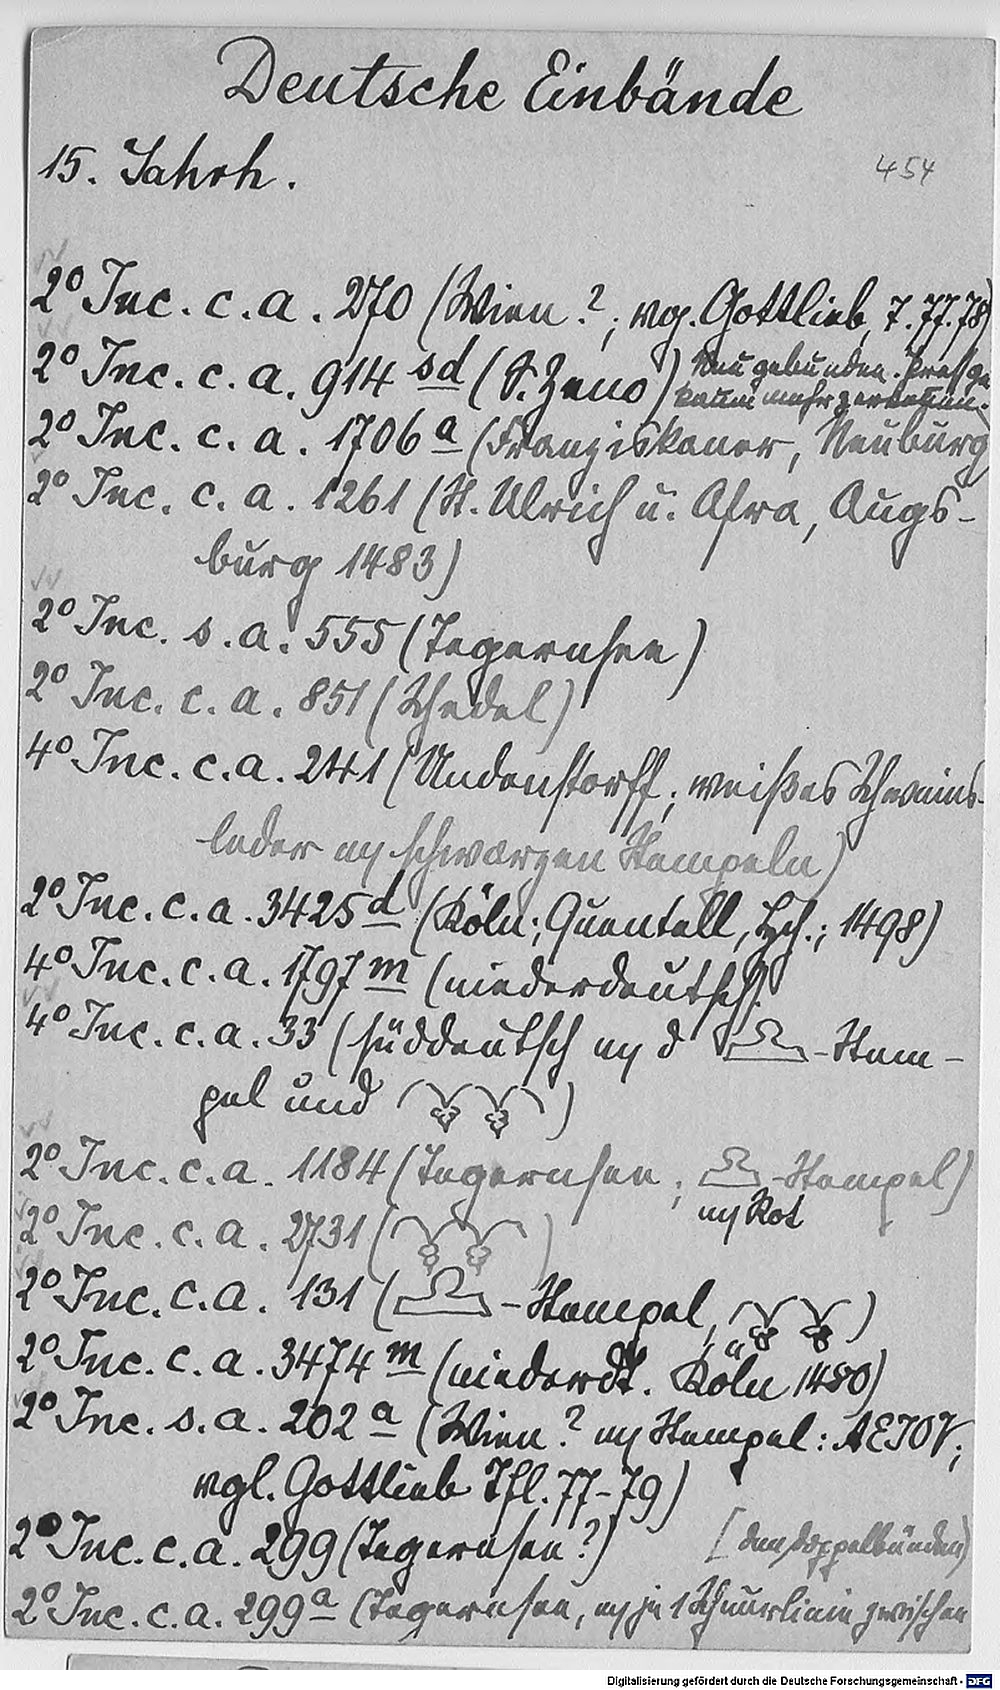 Deutsche Einbände
15. Jahrh.
454
2° Inc. c. a. 270 (Wien?; vgl. Gottlieb, T. 77.78)
2° Inc. c. a. 914 sd (S. Zeno) Neu gebunden.
kaum mehr zu erkennen.
2° Inc. c. a. 1706 a (Franziskaner, Neuburg
2° Inc. c. a. 1261 (St. Ulrich u. Afra, Augs-
burg 1483)
2° Inc. s. a. 555 (Tegernsee)
2° Inc. c. a. 851 (Schedel)
4° Inc. c. a. 241 (Undenstorff; weißes Schweins-
leder m schwarzen Stempeln)
2° Inc. c. a. 3425 d (Köln; Quentell, Hch.; 1498)
4° Inc. c. a. 1797 m (niederdeutsch)
4° Inc. c. a. 33 (süddeutsch m d -Stem-
pel und )
2° Inc. c. a. 1184 (Tegernsee; -Stempel)
m Rot
2° Inc. c. a. 2731 ( )
2° Inc. c. a. 131 ( -Stempel, )
2° Inc. c. a. 3474 m (niederdt. Köln 1480)
2° Inc. s. a. 202 a (Wien? m Stempel: AEIOV;
vgl. Gottlieb Tfl. 77-79)
2° Inc. c. a. 299 (Tegernsee?) [den Doppelbünden)
2° Inc. c. a. 299 a (Tegernsee, m je 1 Schnurlinie zwischen
Digitalisierung gefördert durch die Deutsche Forschungsgemeinschaft - DFG